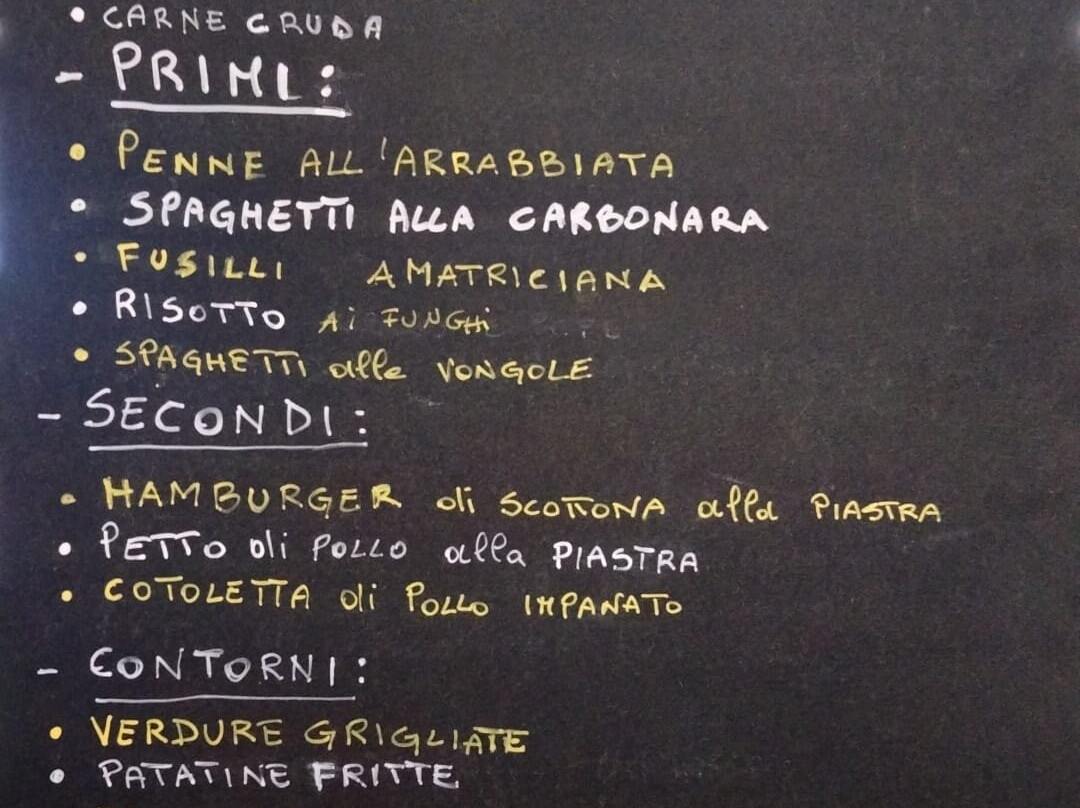 • CARNE CRUDA
- PRIMI:
• PENNE ALL'ARRABBIATA
• SPAGHETTI ALLA CARBONARA
• FUSILLI AMATRICIANA
• RISOTTO Ai FUNGHi
• SPAGHETTI alle VONGOLE
- SECONDI:
• HAMBURGER di SCOTTONA alla PIASTRA
• PETTO di POLLO alla PIASTRA
• COTOLETTA di POLLO IMPANATO
- CONTORNI:
• VERDURE GRIGLIATE
• PATATINE FRITTE